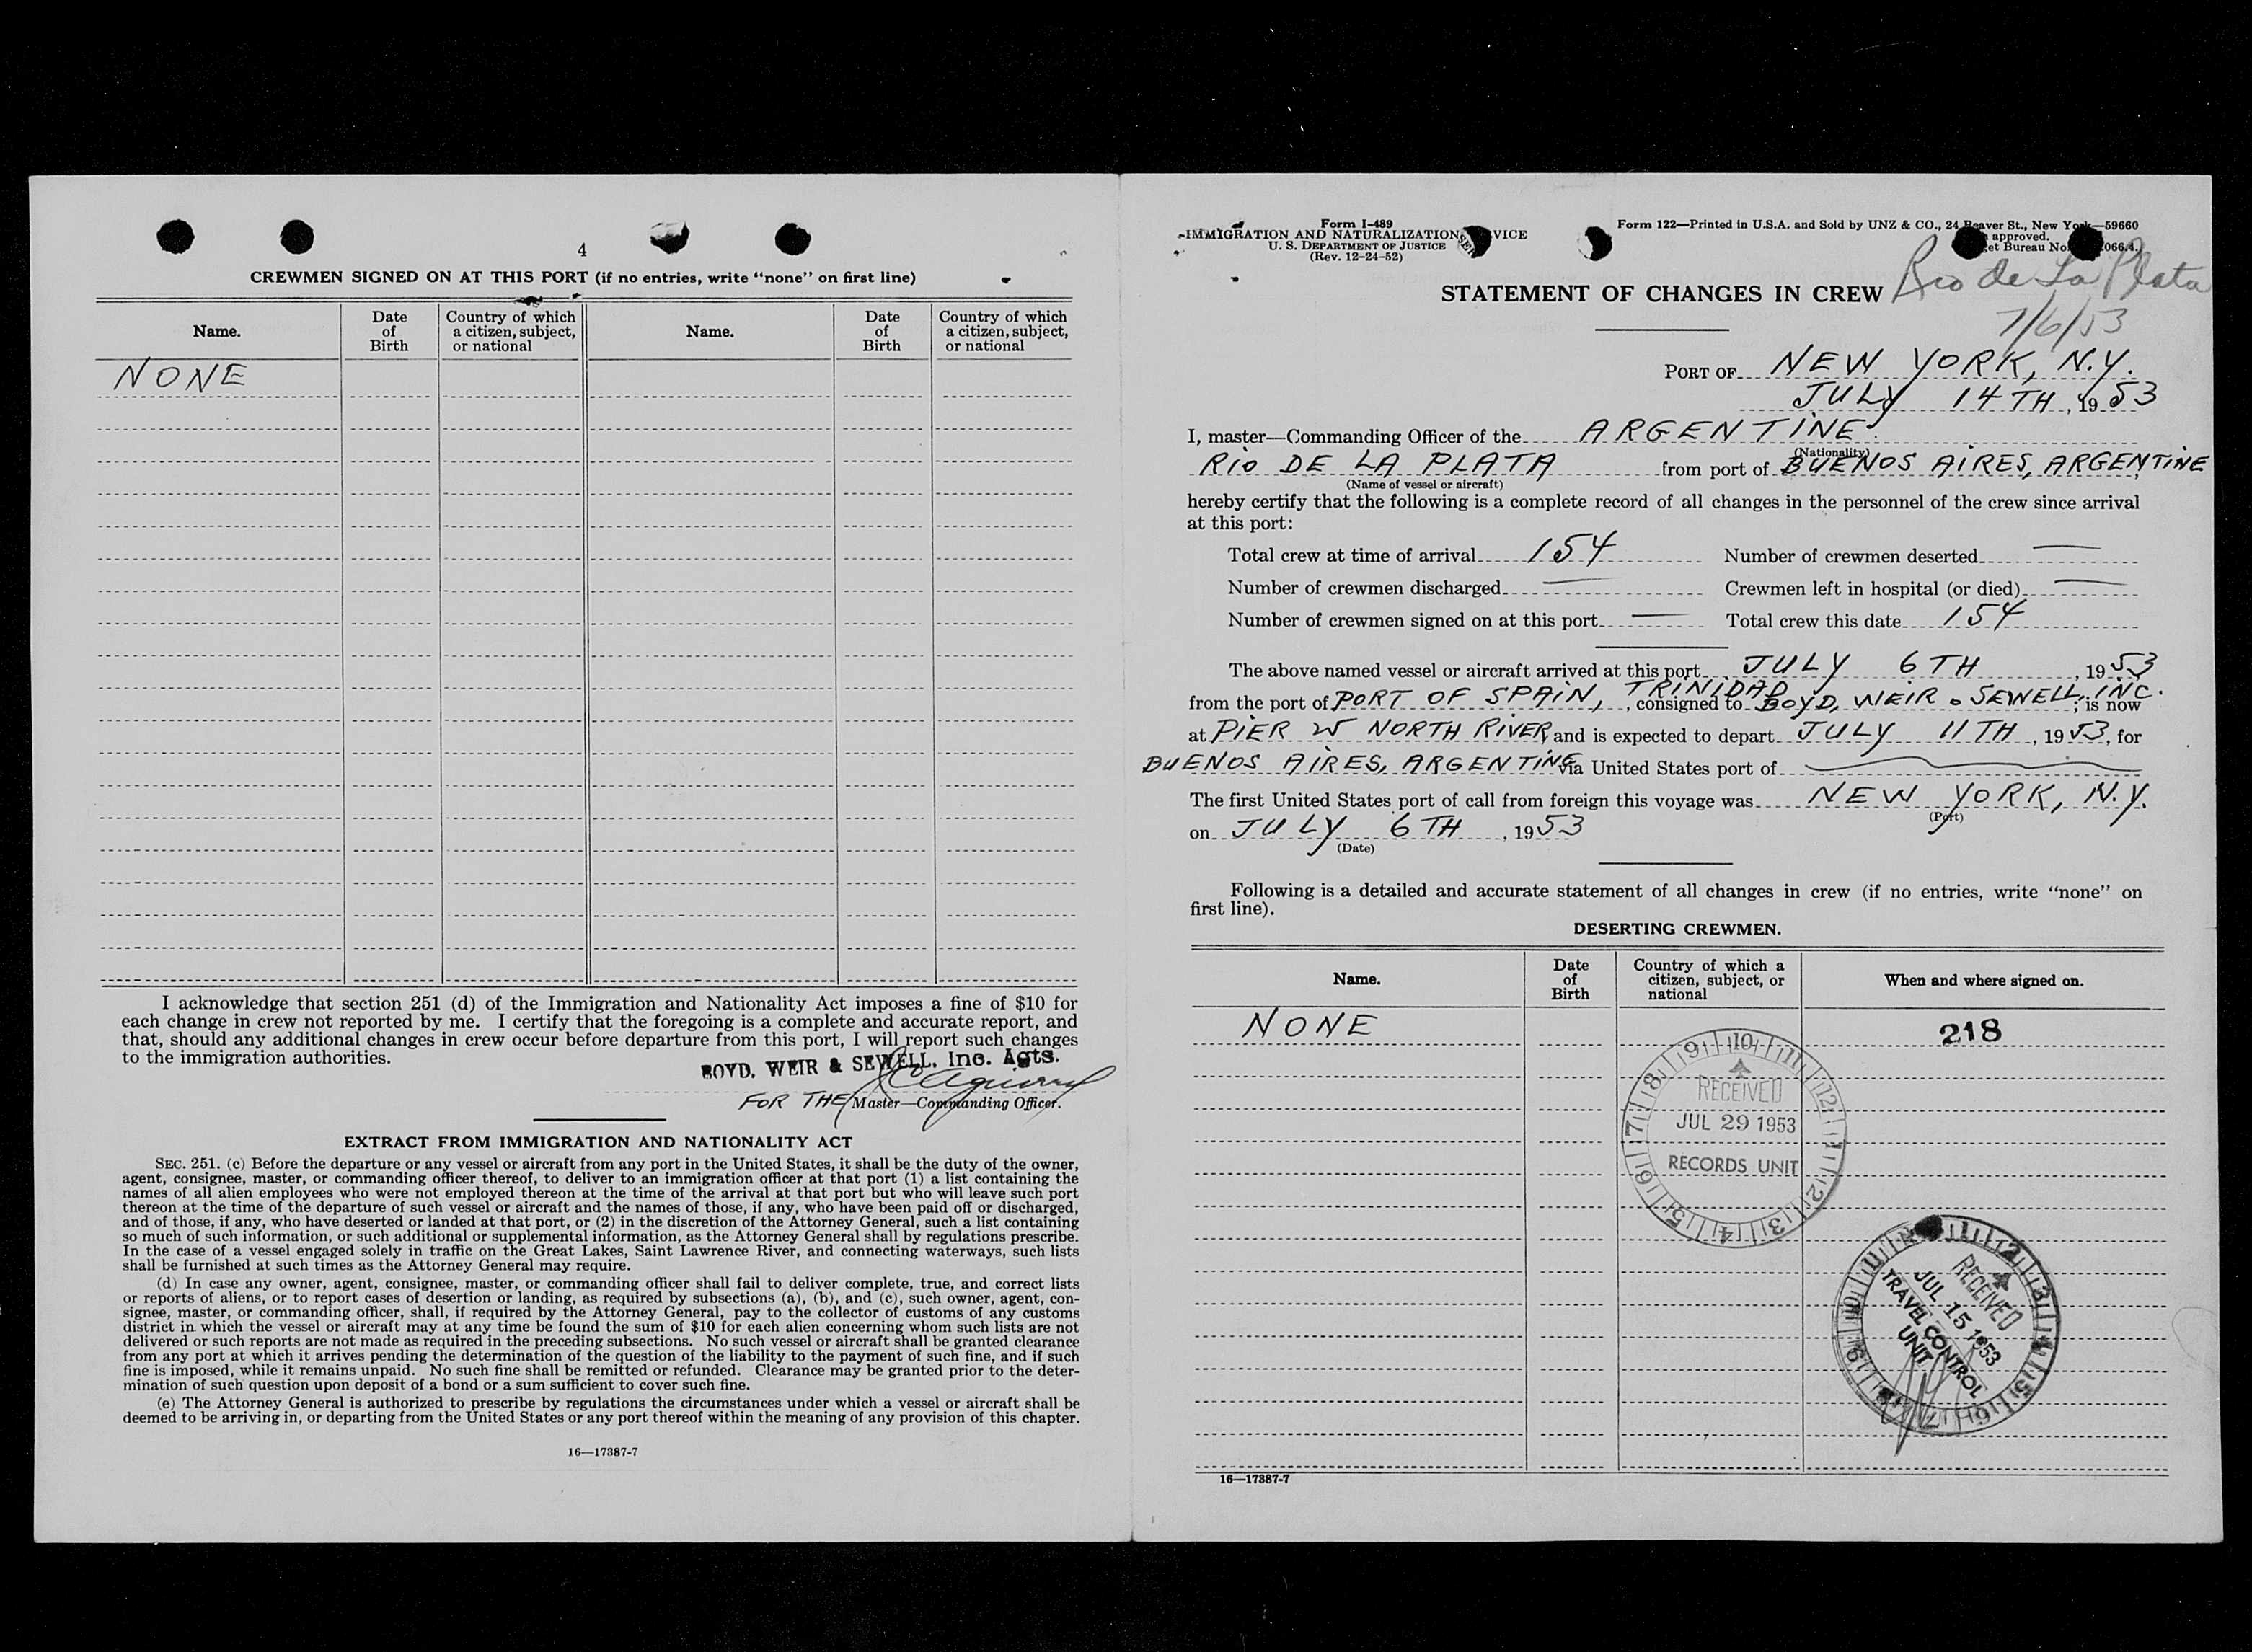 4
CREWMEN SIGNED ON AT THIS PORT (if no entries, write "none" on first line)
Name. Date of Birth Country of which a citizen, subject, or national Name. Date of Birth Country of which a citizen, subject, or national
NONE
I acknowledge that section 251 (d) of the Immigration and Nationality Act imposes a fine of $10 for
each change in crew not reported by me. I certify that the foregoing is a complete and accurate report, and
that, should any additional changes in crew occur before departure from this port, I will report such changes
to the immigration authorities.
BOYD, WEIR & SEWELL, Inc. Agts.
FOR THE Master—Commanding Officer.
EXTRACT FROM IMMIGRATION AND NATIONALITY ACT
SEC. 251. (c) Before the departure or any vessel or aircraft from any port in the United States, it shall be the duty of the owner,
agent, consignee, master, or commanding officer thereof, to deliver to an immigration officer at that port (1) a list containing the
names of all alien employees who were not employed thereon at the time of the arrival at that port but who will leave such port
thereon at the time of the departure of such vessel or aircraft and the names of those, if any, who have been paid off or discharged,
and of those, if any, who have deserted or landed at that port, or (2) in the discretion of the Attorney General, such a list containing
so much of such information, or such additional or supplemental information, as the Attorney General shall by regulations prescribe.
In the case of a vessel engaged solely in traffic on the Great Lakes, Saint Lawrence River, and connecting waterways, such lists
shall be furnished at such times as the Attorney General may require.
(d) In case any owner, agent, consignee, master, or commanding officer shall fail to deliver complete, true, and correct lists
or reports of aliens, or to report cases of desertion or landing, as required by subsections (a), (b), and (c), such owner, agent, con-
signee, master, or commanding officer, shall, if required by the Attorney General, pay to the collector of customs of any customs
district in which the vessel or aircraft may at any time be found the sum of $10 for each alien concerning whom such lists are not
delivered or such reports are not made as required in the preceding subsections. No such vessel or aircraft shall be granted clearance
from any port at which it arrives pending the determination of the question of the liability to the payment of such fine, and if such
fine is imposed, while it remains unpaid. No such fine shall be remitted or refunded. Clearance may be granted prior to the deter-
mination of such question upon deposit of a bond or a sum sufficient to cover such fine.
(e) The Attorney General is authorized to prescribe by regulations the circumstances under which a vessel or aircraft shall be
deemed to be arriving in, or departing from the United States or any port thereof within the meaning of any provision of this chapter.
16—17387-7
Form I-489
IMMIGRATION AND NATURALIZATION SERVICE
U. S. DEPARTMENT OF JUSTICE
(Rev. 12-24-52)
Form 122—Printed in U.S.A. and Sold by UNZ & CO., 24 Beaver St., New York—59660
approved.
et Bureau No. 066.4.
STATEMENT OF CHANGES IN CREW
Rio de La Plata
7/6/53
PORT OF NEW YORK, N.Y.
JULY 14TH, 1953
I, master—Commanding Officer of the ARGENTINE
(Nationality)
RIO DE LA PLATA from port of BUENOS AIRES, ARGENTINE,
(Name of vessel or aircraft)
hereby certify that the following is a complete record of all changes in the personnel of the crew since arrival
at this port:
Total crew at time of arrival 154 Number of crewmen deserted —
Number of crewmen discharged — Crewmen left in hospital (or died) —
Number of crewmen signed on at this port — Total crew this date 154
The above named vessel or aircraft arrived at this port JULY 6TH, 1953
from the port of PORT OF SPAIN, TRINIDAD, consigned to BOYD, WEIR & SEWELL, INC.; is now
at PIER W NORTH RIVER, and is expected to depart JULY 11TH, 1953, for
BUENOS AIRES, ARGENTINE via United States port of
The first United States port of call from foreign this voyage was NEW YORK, N.Y.
(Port)
on JULY 6TH, 1953
(Date)
Following is a detailed and accurate statement of all changes in crew (if no entries, write "none" on
first line).
DESERTING CREWMEN.
Name. Date of Birth Country of which a citizen, subject, or national When and where signed on.
NONE
218
9 10 11 12 1 2 3 4 5 6 7 8
RECEIVED
JUL 29 1953
RECORDS UNIT
1 2 3 4 5 6 7 8 9 10 11
RECEIVED
JUL 15 1953
TRAVEL CONTROL
UNIT
16—17387-7